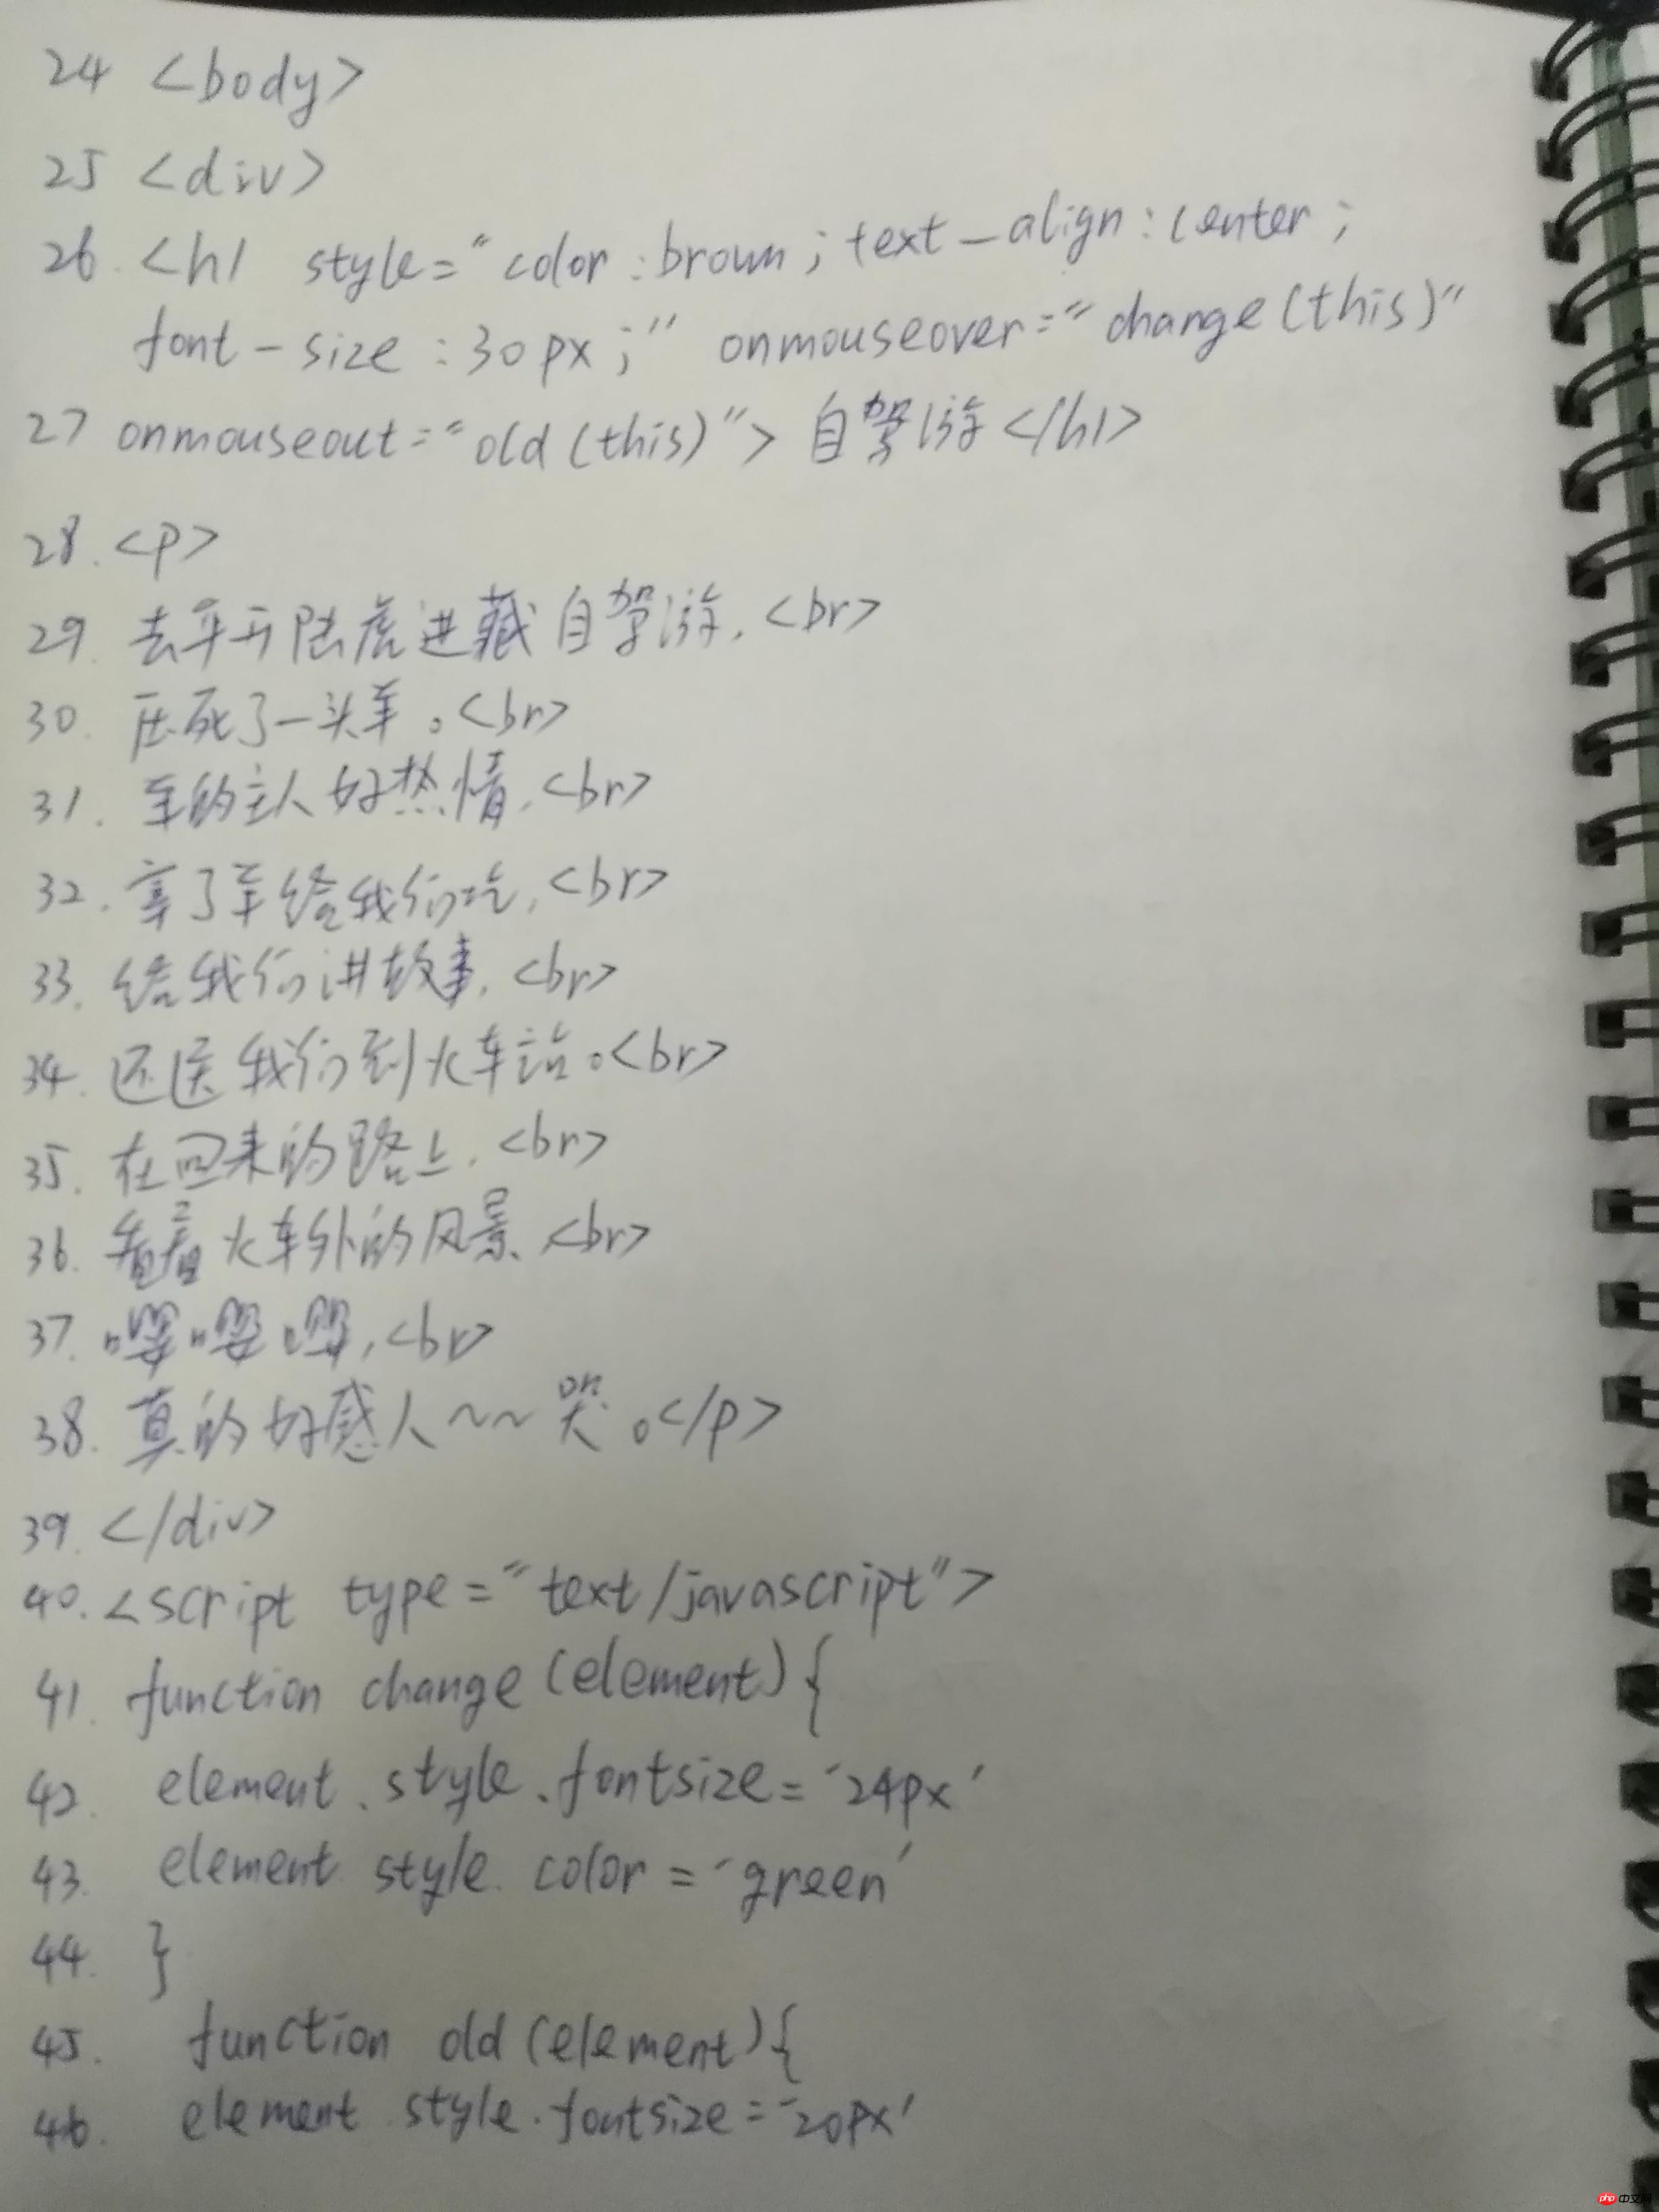 24 <body>
25 <div>
26. <h1 style="color:brown;text-align:center;
font-size:30px;" onmouseover="change(this)"
27 onmouseout="old(this)">自驾游</h1>
28. <p>
29. 去年开陆虎进藏自驾游,<br>
30. 压死了一头羊。<br>
31. 羊的主人好热情,<br>
32. 宰了羊给我们吃,<br>
33. 给我们讲故事,<br>
34. 还送我们到火车站。<br>
35. 在回来的路上,<br>
36. 看着火车外的风景,<br>
37. 嘤嘤嘤,<br>
38. 真的好感人~~哭。</p>
39. </div>
40. <script type="text/javascript">
41. function change(element){
42. element.style.fontsize='24px'
43. element style. color='green'
44. }
45. function old(element){
46. element.style.fontsize='20px'
php 中文网